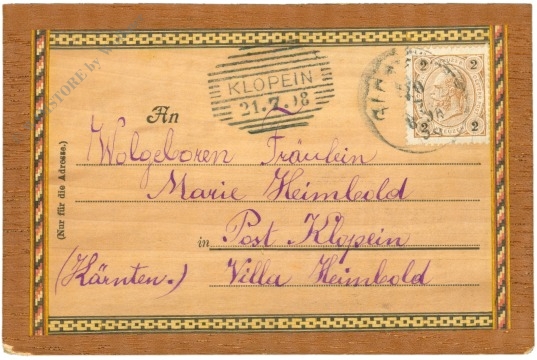 KLOPEIN
21.7.98
2 2
2 2
An
Wolgeboren Fräulein
Marie Heimbold
in Post Klopein
(Kärnten.) Villa Heimbold
(Nur für die Adresse.)